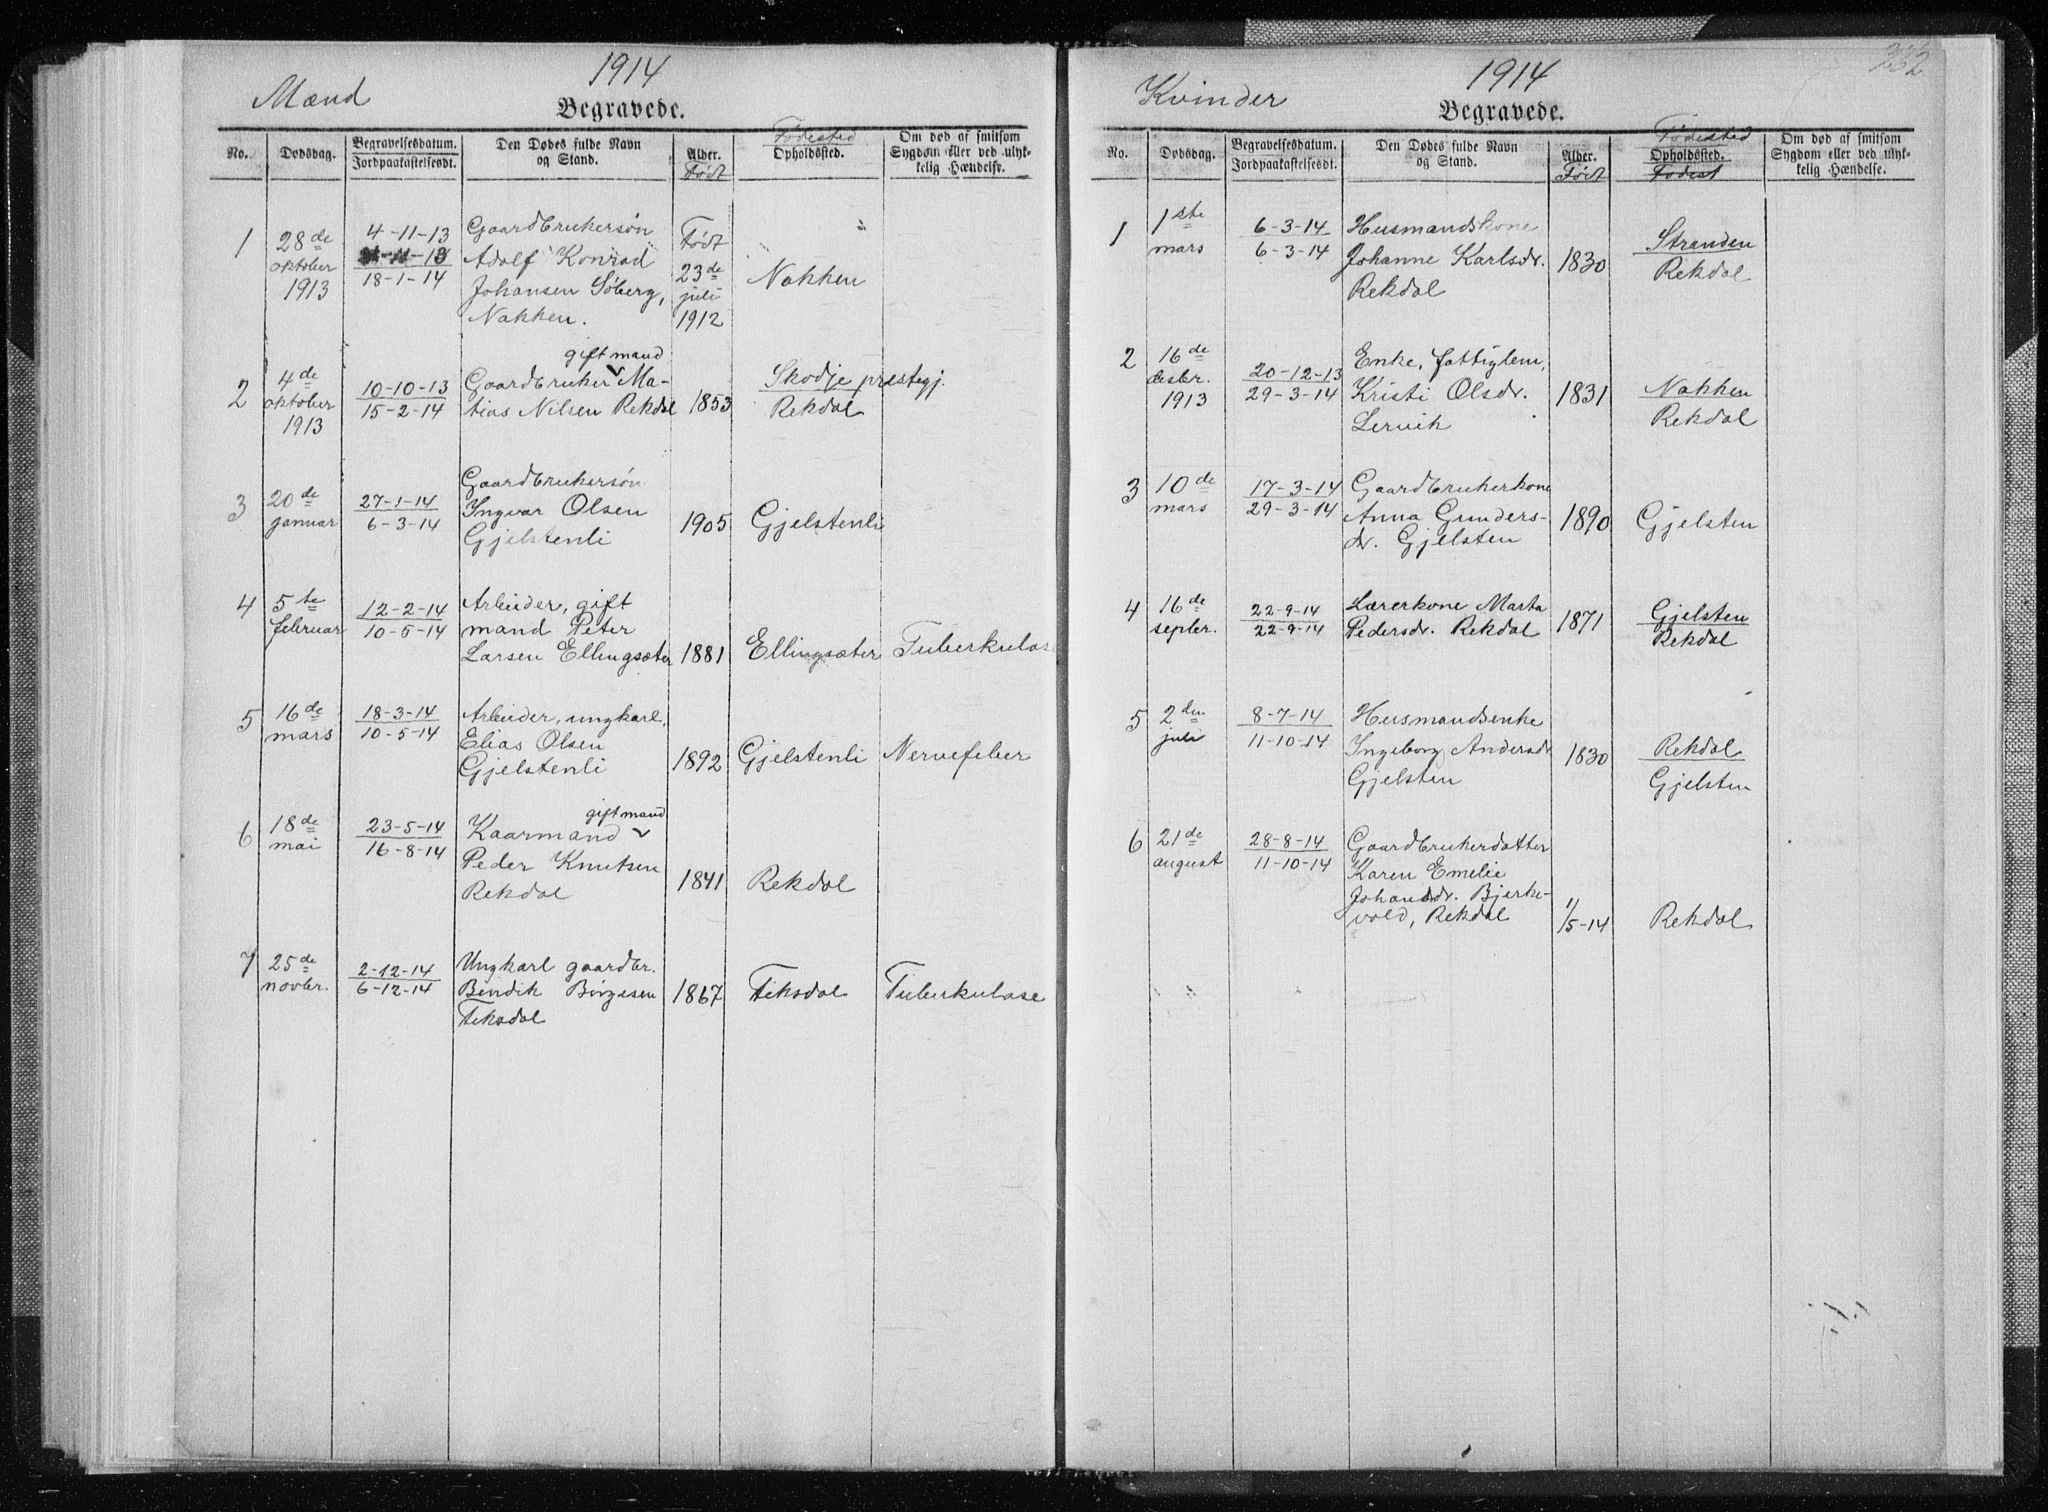 1914
Mænd
Begravede.
No. Dødsdag. Begravelsesdatum. Jordpaakastelsesdt. Den Dødes fulde Navn og Stand. Alder. Født Fødested Opholdssted. Om død af smitsom Sygdom eller ved ulykkelig Hændelse.
1 28de oktober 1913
4-11-13
18-1-14
Gaardbrukersøn
Adolf Konrad
Johansen Søberg,
Nakken.
Født 23de juli 1912
" Nakken
2 4de oktober 1913
10-10-13
15-2-14
gift mand
Gaardbruker Ma-
tias Nilsen Rekdal
1853
Skodje prestegj.
Rekdal
3 20de januar
27-1-14
6-3-14
Gaardbrukersøn
Ingvar Olsen
Gjelstenli
1905 Gjelstenli
4 5te februar
12-2-14
10-5-14
Arbeider, gift
mand Peter
Larsen Ellingsæter
1881 Ellingsæter Tuberkulose
5 16de mars
18-3-14
10-5-14
Arbeider, ungkarl,
Elias Olsen
Gjelstenli
1892 Gjelstenli Nervefeber
6 18de mai
23-5-14
16-8-14
gift mand
Kaarmand
Peder Knutsen
Rekdal
1841 Rekdal
7 25de novbr.
2-12-14
6-12-14
Ungkarl gaardbr.
Bendik Børgesen
Tiksdal
1867 Tiksdal Tuberkulose
252
1914
Kvinder
Begravede.
No. Dødsdag. Begravelsesdatum. Jordpaakastelsesdt. Den Dødes fulde Navn og Stand. Alder. Født Fødested Opholdssted. Fødest Om død af smitsom Sygdom eller ved ulykkelig Hændelse.
1 1ste mars
6-3-14
6-3-14
Husmandskone
Johanne Karlsdr.
Rekdal
1830
Stranden
Rekdal
2 16de desbr. 1913
20-12-13
29-3-14
Enke, fattiglem,
Kristi Olsdr.
Lervik
1831
Nakken
Rekdal
3 10de mars
17-3-14
29-3-14
Gaardbrukerkone
Anna Gunders-
dr. Gjelsten
1890 Gjelsten
4 16de septbr.
22-9-14
22-9-14
Lærerkone Marta
Pedersdr. Rekdal
1871
Gjelsten
Rekdal
5 2den juli
8-7-14
11-10-14
Husmandsenke
Ingeborg Andersdr.
Gjelsten
1830
Rekdal
Gjelsten
6 21de august
28-8-14
11-10-14
Gaardbrukerdatter
Karen Emelie
Johansdr. Bjerke-
vold, Rekdal
1/5-14
Rekdal